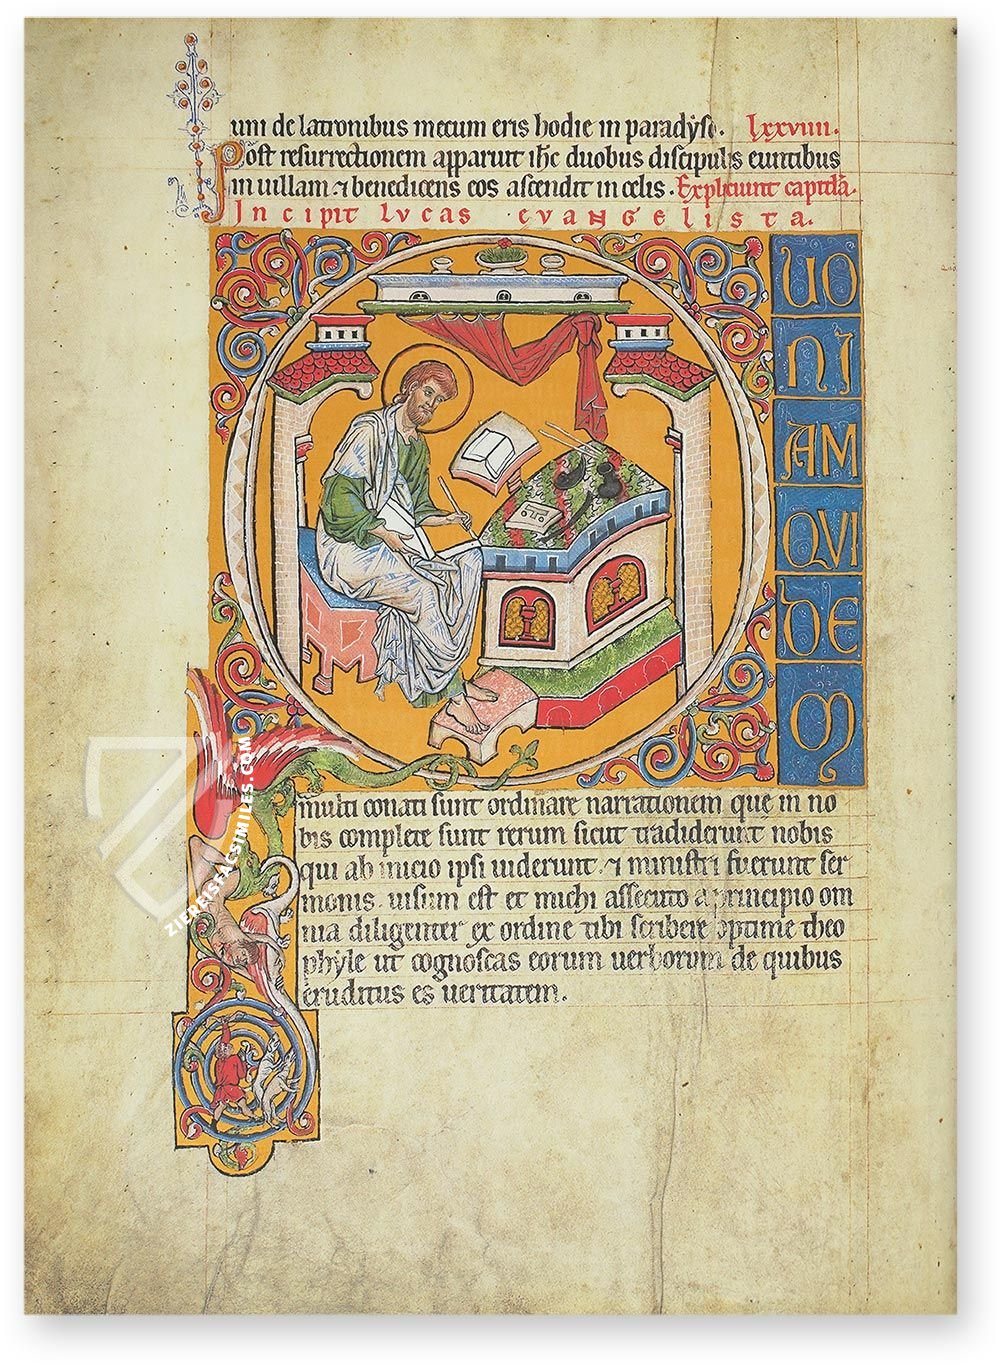 uni de latronibus mecum eris hodie in paradyso. lxxviiii.
Post resurrectionem apparuit ihc duobus discipulis euntibus
in uillam ⁊ benedicens eos ascendit in celis. Expliciunt capitula.
Incipit lvcas evangelista.
UO
NI
AM
QVI
DE
M
multi conati sunt ordinare narrationem que in no
bis complete sunt rerum sicut tradiderunt nobis
qui ab inicio ipsi uiderunt ⁊ ministri fuerunt ser
monis. uisum est et michi assecuto a principio om
nia diligenter ex ordine tibi scribere optime theo
phyle ut cognoscas eorum uerborum de quibus
eruditus es ueritatem.
ZIEREISFACSIMILES.COM